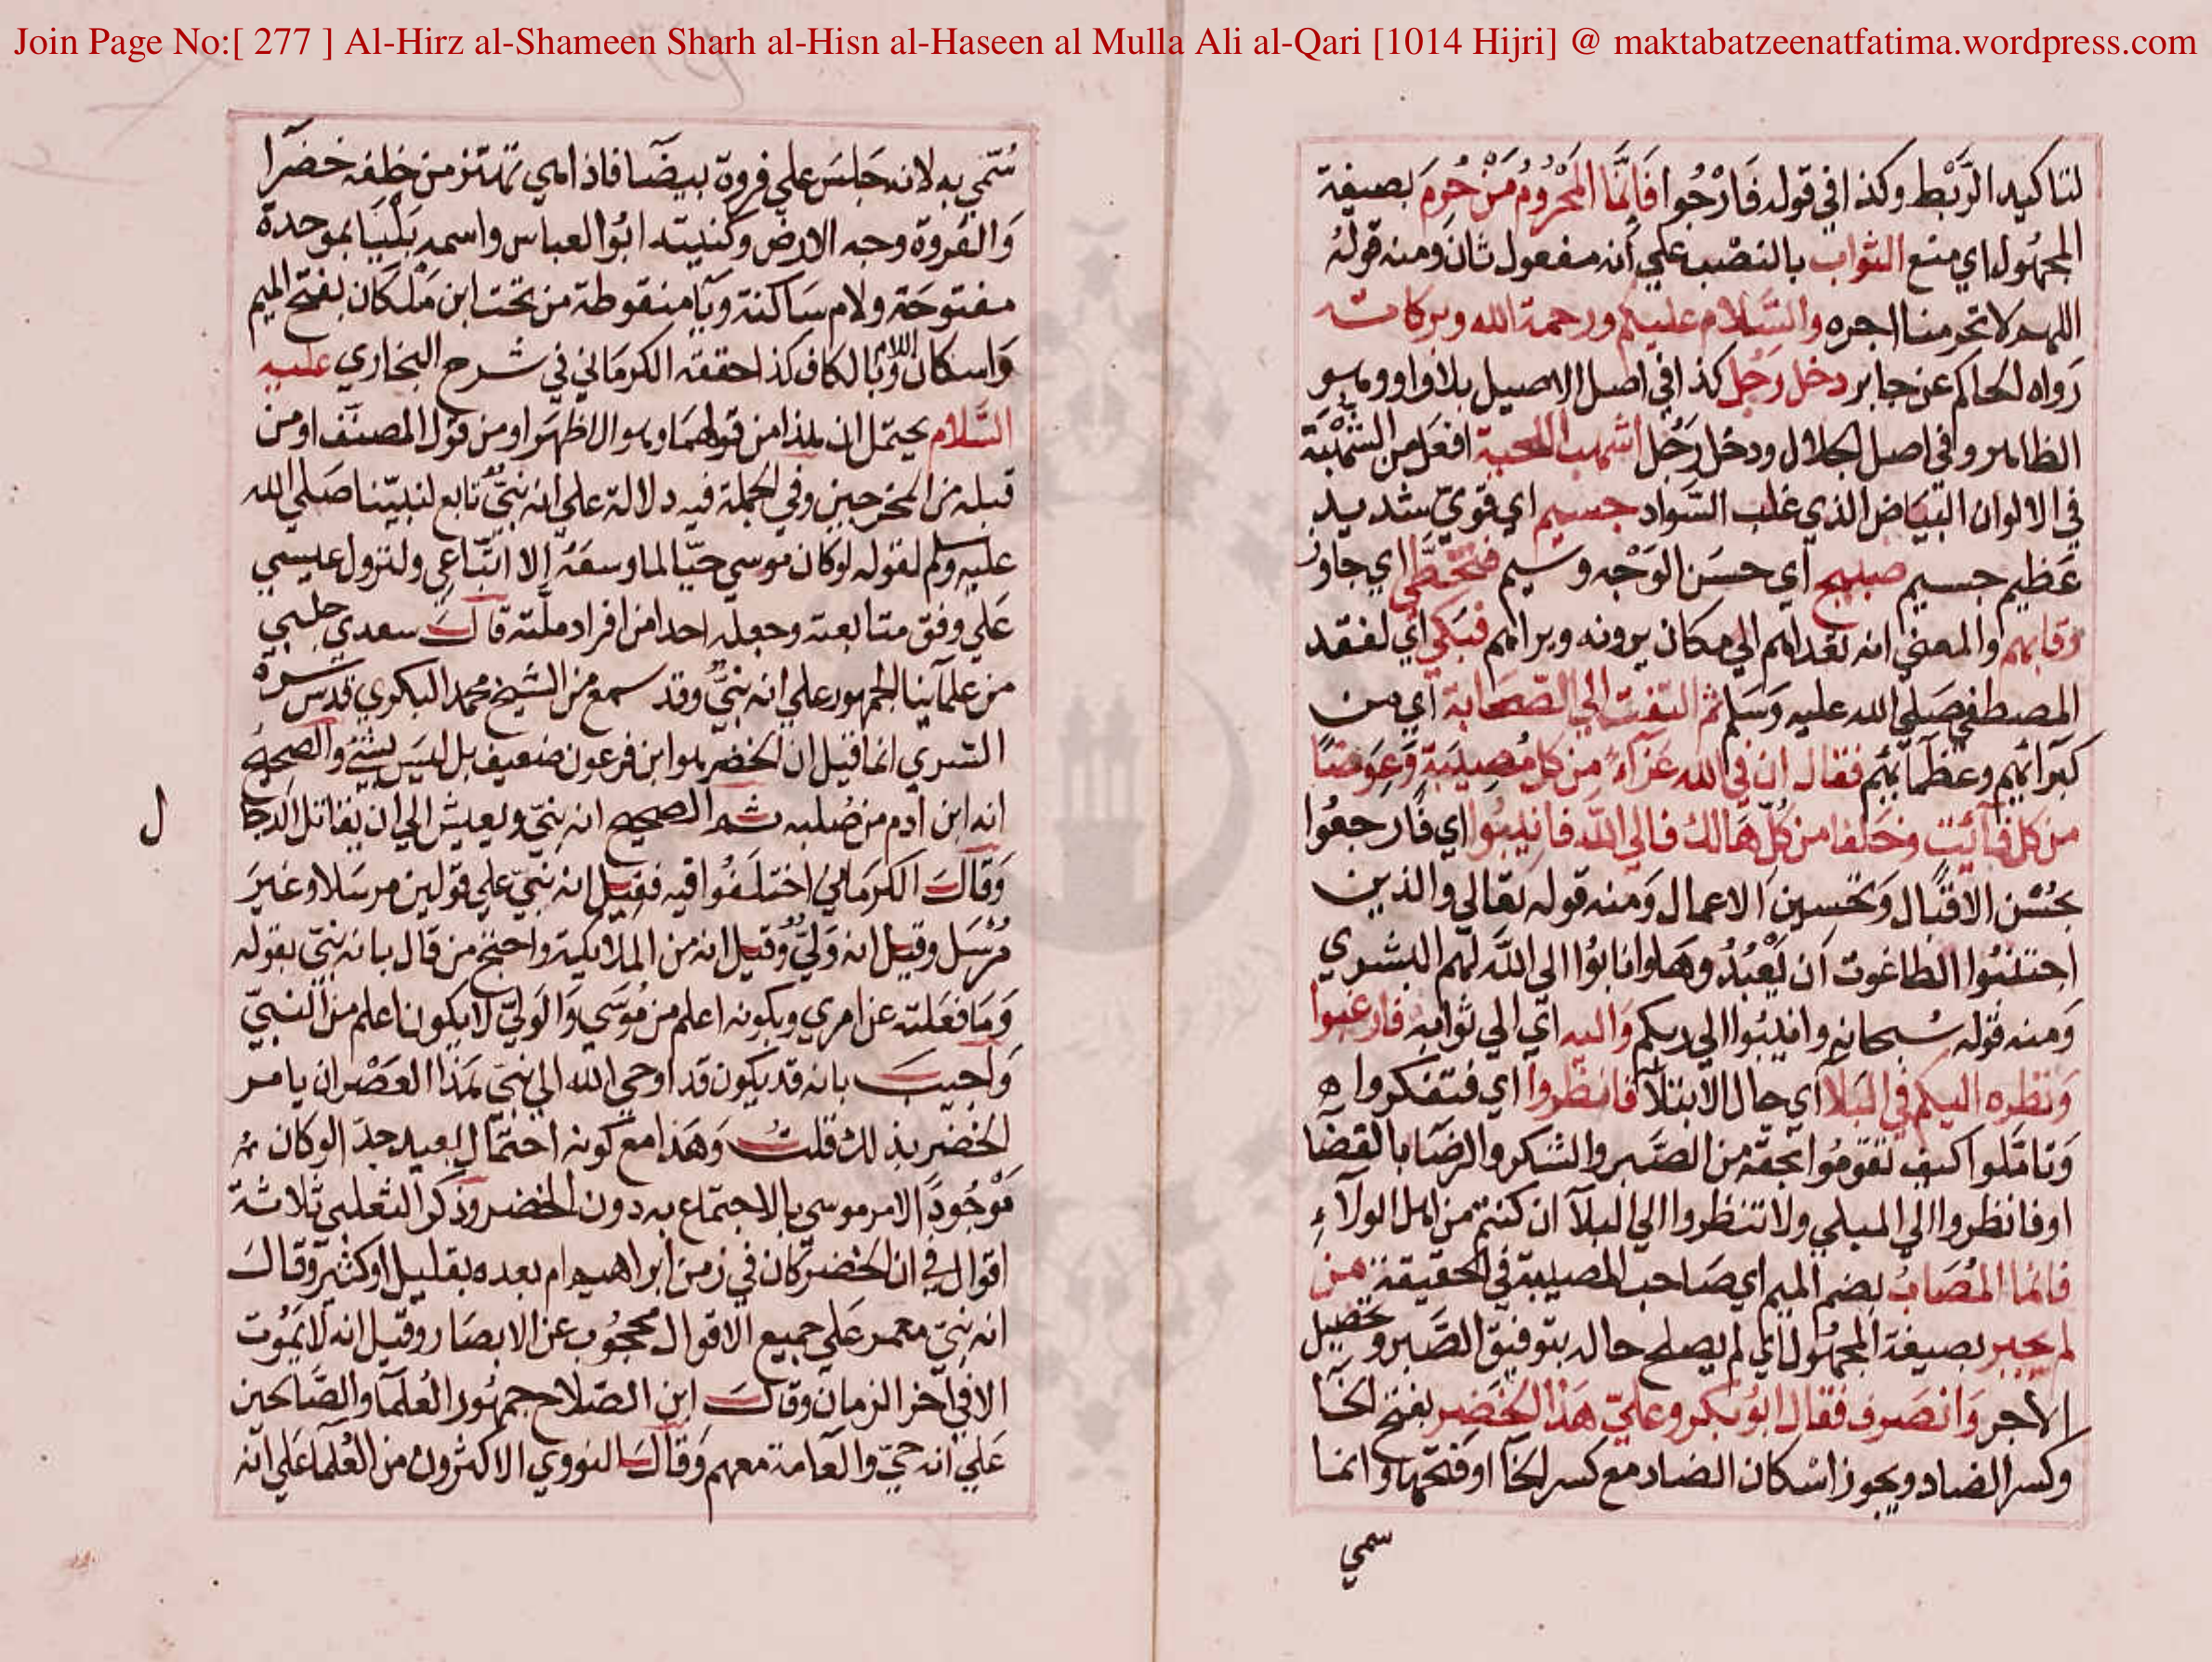 Join Page No:[ 277 ] Al-Hirz al-Shameen Sharh al-Hisn al-Haseen al Mulla Ali al-Qari [1014 Hijri] @ maktabatzeenatfatima.wordpress.com
لتاكيد الرَّبْط وكذا في قوله فَارْجُوا فَاِنَّمَا المَحْرُومُ مَنْ حُرِمَ بصيغة
المجهُول اي منع الثواب بالنصْب علي أنه مفعول ثان وَمنه قولهُ
اللهم لا تحرمنا اجره والسَّلام عليكم ورحمة الله وبركاته
رَواه الحاكم عن جابر دخل رَجُل كذا في اصل الاصيل بلا واو وهو
الظاهر وفي اصل الجلال ودخل رَجُل اشهب اللحية افعَل من الشُّهْبَة
في الالوان البَيَاض الذي غلب السَّواد جسيم اي قويّ شديد
عَظيم جسيم صبيح اي حسَن الوَجْه وسيم فتخطَّى اي جاوز
رقابهم والمعنيٰ انه تعداهم الي مكان يرونه ويراهم فبَكيٰ اي لفقد
المصطفي صَلي الله عليه وَسَلم ثم التفت الي الصَّحَابة اي من
كبرائهم وعظمائهم فقال ان في الله عَزاءً من كل مُصِيبَةٍ وَعِوَضًا
من كل فائت وخَلفا من كُلّ هَالك فالي الله فانيبُوا اي فارجعُوا
بحُسْن الاقبال وَتحسين الاعمال وَمنه قوله تعالي والذين
اجتنبُوا الطاغوت اَن يَعْبُدُوهَا وانابُوا الى اللَّه لهم البشري
وَمنه قوله سُبحانه وانيبُوا الي ربكم وَاليه اي الي ثوابه فارغبوا
وَنظره اليكم في البَلا اي حال الابتلآ فانظروا اي فتفكروا
وَتامّلوا كيف تقومُوا بحقه من الصَّبر والشكر والرضَا بالقضا
او فانظروا الي المبلي ولا تنظروا الي البلآ ان كنتم من اهل الولآءِ
فانما المُصَابُ بضم الميم اي صَاحب المصيبة في الحقيقة من
لم يجبر بصيغة المجهُول اي لم يصلح حاله بتوفيق الصَّبر وتحصيل
الاجر وَانصَرف فقال ابُو بكر وعليّ هَذا الخَضِر بفتح الخَا
وكسر الضاد ويجوز اسْكان الضاد مع كسر الخا او فتحها وانما
سمي
سُمّي به لانه جَلسَ علي فروة بيضَا فاذا هي تهتز من خلفه خضرَا
وَالفَروة وجه الارض وكنيته ابُو العباس واسمه بَلْيَا بموحدة
مفتوحَة ولام سَاكنة ويَا منقوطة من تحت ابن مَلْكان بفتح الميم
وَاسكان اللام وَبالكاف كذا حققه الكرمَاني في شرح البخاري عليه
السَّلام يحتمل ان هذا من قولهمَا وهو الاظهَر او من قول المصنّف او من
قبله من المخرجين وفي الجملة فيه دلالة علي انه نبيّ تابع لنبيّنا صَلي الله
عليه وَسَلم لقوله لو كان موسي حيّا لما وسعَهُ إلا اتّباعي ولنزول عيسي
عَلي وفق متابعته وجعله احدا من افراد ملّته قالَ سعدي جلبي
من علمآينا الجمهور علي انه نبيّ وقد سمع من الشيخ محمد البكوي قدس سره
السري انما قيل ان الخضر هو ابن فرعون ضعيف بل ليسَ بشئ والصحيح
انه ابن آدم من صُلبه ثم الصحيح انه نبيّ ويعيش الي ان يقاتل الدجا
ل
وَقالَ الكرمَانيُ اختلَفُوا فيه فقيل انه نبيّ علي قولين مرسَلا وغيرَ
مُرْسَل وقيل انه وَليّ وقيل انه من الملايكة واحتج من قال بانه نبيّ بقوله
وَمَا فعَلته عن امري وبكونه اعلم من مُوسَي وَالوَليّ لا يكون اعلم من النبيّ
وَاجيبَ بانه قد يكون قد اوحي الله الي نبيّ هَذا العَصْر ان يامر
الخضر بذلك قلتُ وَهَذا مع كونه احتمَال بعيد جدّا لو كان ثم
مَوْجُودًا لامر موسي بالاجتماع به دون الخضر وَذكر الثعلبي ثلاثة
اقوال في ان الخضر كان في زمن ابراهيم ام بعده بقليل او كثير وَقالَ
انه نبيّ معمر عَلي جميع الاقوال محجُوب عن الابصَار وقيل انه لا يمُوت
الا في آخر الزمان وَقالَ ابن الصّلاح جمهُور العُلمَا والصَّالحين
عَلي انه حيّ والعَامة معهم وَقالَ النووي الاكثرون من العُلمَا عَلي انه